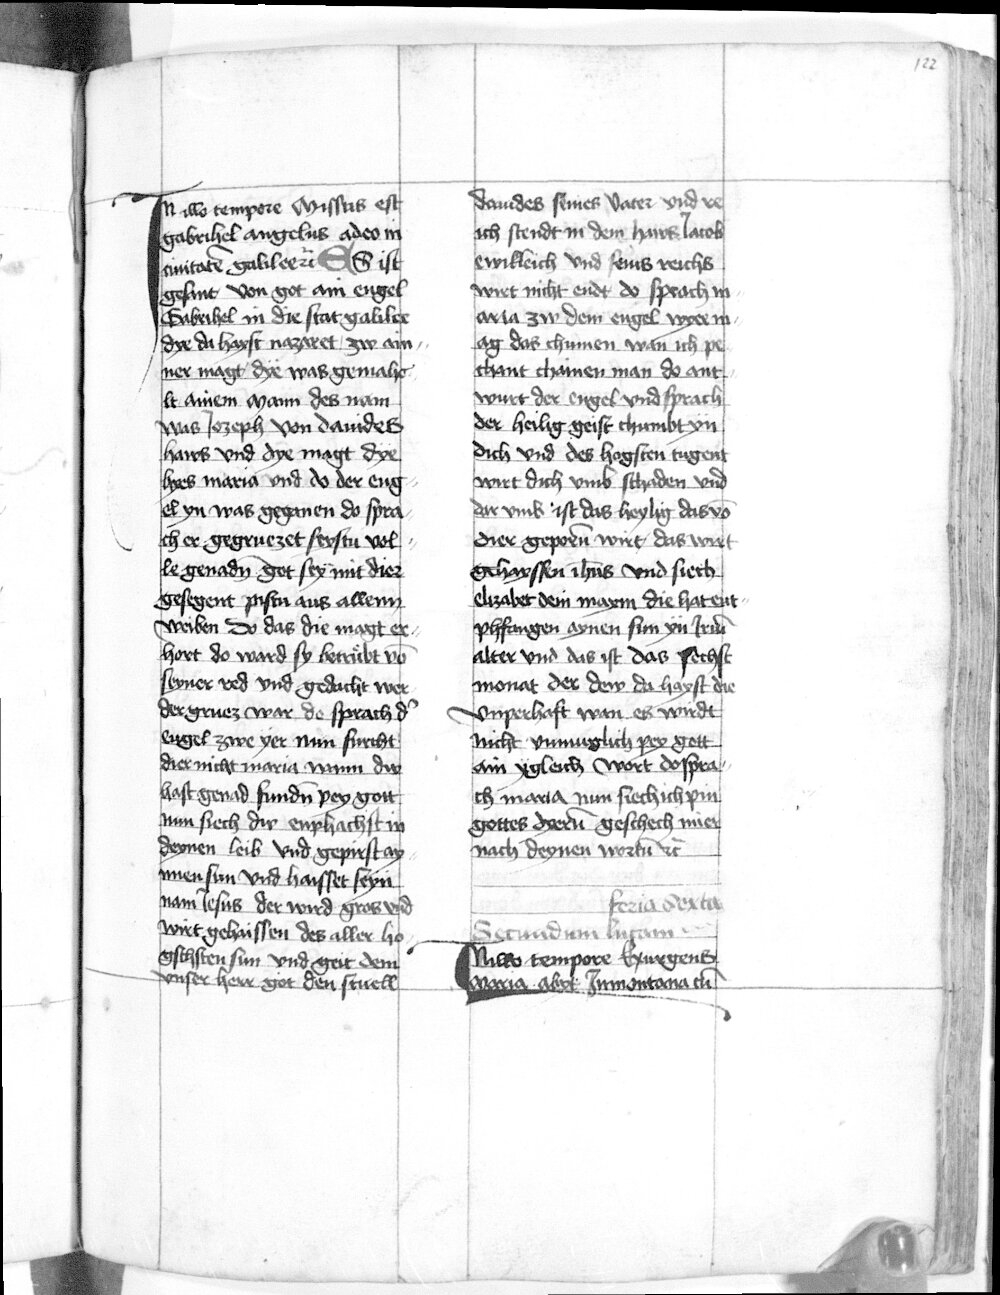 122
In illo tempore Missus est
gabrihel angelus adeo in
ciuitatē galilee rc̄ ES ist
gesant von got ain engel
Gabrihel in die stat galilee
dye da hayst nazaret zw ain-
ner magt dye was gemahe-
lt ainem Mann des nam
was Jozeph von dauides
haws vnd dye magt dye
hyes maria vnd do der eng-
el yn was gegangen do spra-
ch er gegruezet seystu vol-
le genadn̄ got sey mit dier
gesegent pistu aus allenn
weiben Do das die magt er-
hort do ward sy betrübt vō
seyner red vnd gedacht wer
der gruez war do sprach d'
engel zwe yer nun furcht
dier nicht maria wann dw
hast genad fundn̄ pey gott
nun siech dw enphachst in
deynen leib vnd gepirst ay-
nnen sun vnd haisset seyn
nam Jesus der wird gros vnd
wirt gehaissen des aller ho-
gsthsten sun vnd geit dem
vnser herr got den stuell
dauides seines Vater vnd re
ich stendt in dem haws Jacob
ewikleich vnd seins reichs
wirt nicht endt do sprach m-
aria zw dem engel wye m-
ag das chumen wan ich pe
chant chainen man do ant-
wurt der engel vnd sprach
der heilig geist chumbt yn
dich vnd des hogsten tugent
wirt dich vmb schaden vnd
dar vmb ist das heylig das vō
dier geporn̄ wirt das wirt
gehayssen ihūs vnd siech
elizabet dein maem die hat ent-
phfangen aynen sun yn Irm̄
alter vnd das ist das sechst
monat der dew da hayst die
vnperhaft wan es wirdt
nicht vnmuglich pey gott
ain ygleich wort do spra-
ch maria nun siech ich pin
gottes dyern̄ geschech mier
nach deynen wortn̄ rc̄
feria Sexta
Secundum lucam
In illo tempore Exurgens
Maria abyt In montana cū